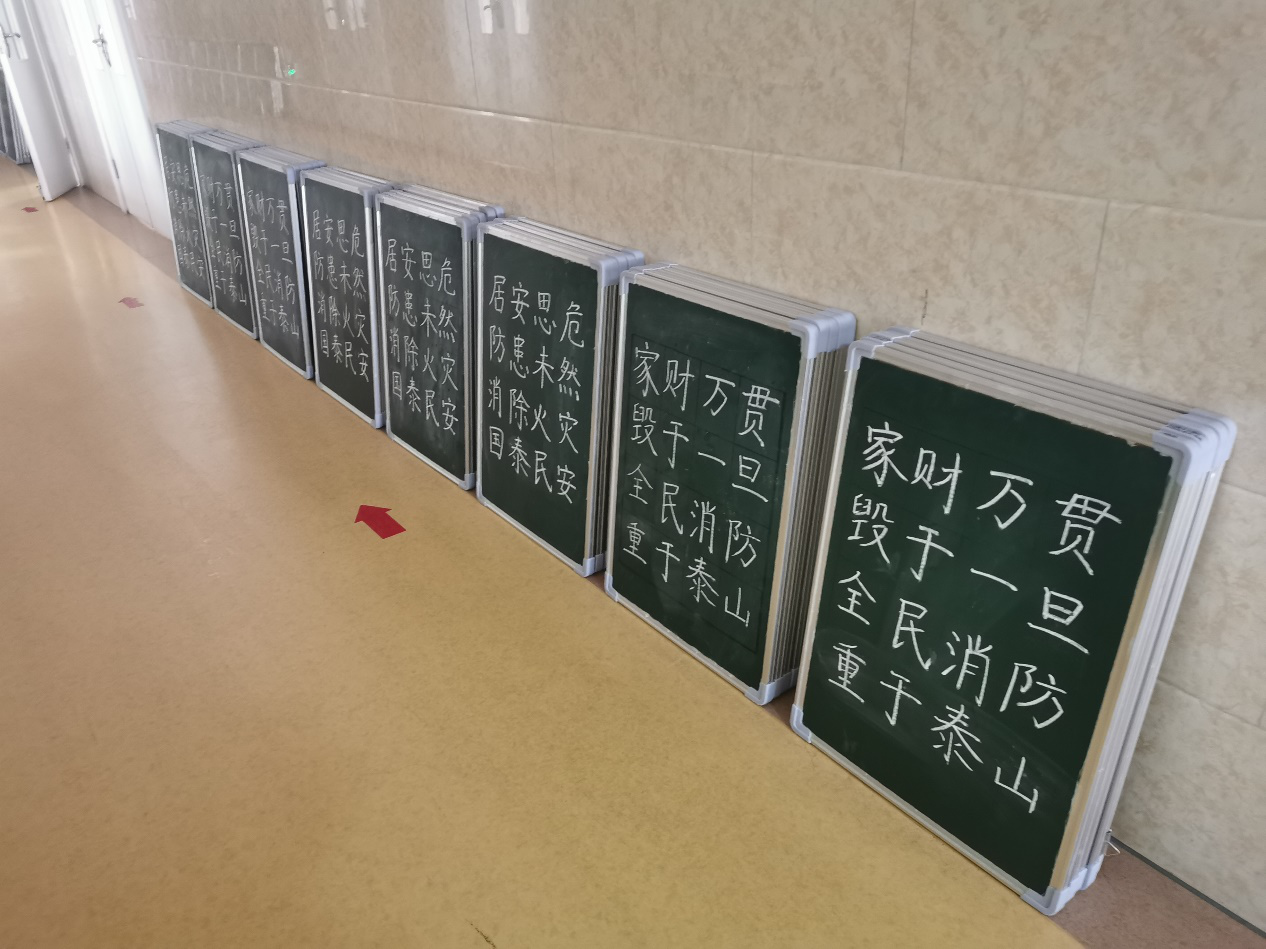 居安思危
防患未然
消除火灾
国泰民安
家财万贯
毁于一旦
全民消防
重于泰山
家财万贯
毁于一旦
全民消防
重于泰山
居安思危
防患未然
消除火灾
国泰民安
居安思危
防患未然
消除火灾
国泰民安
居安思危
防患未然
消除火灾
国泰民安
家财万贯
毁于一旦
全民消防
重于泰山
家财万贯
毁于一旦
全民消防
重于泰山